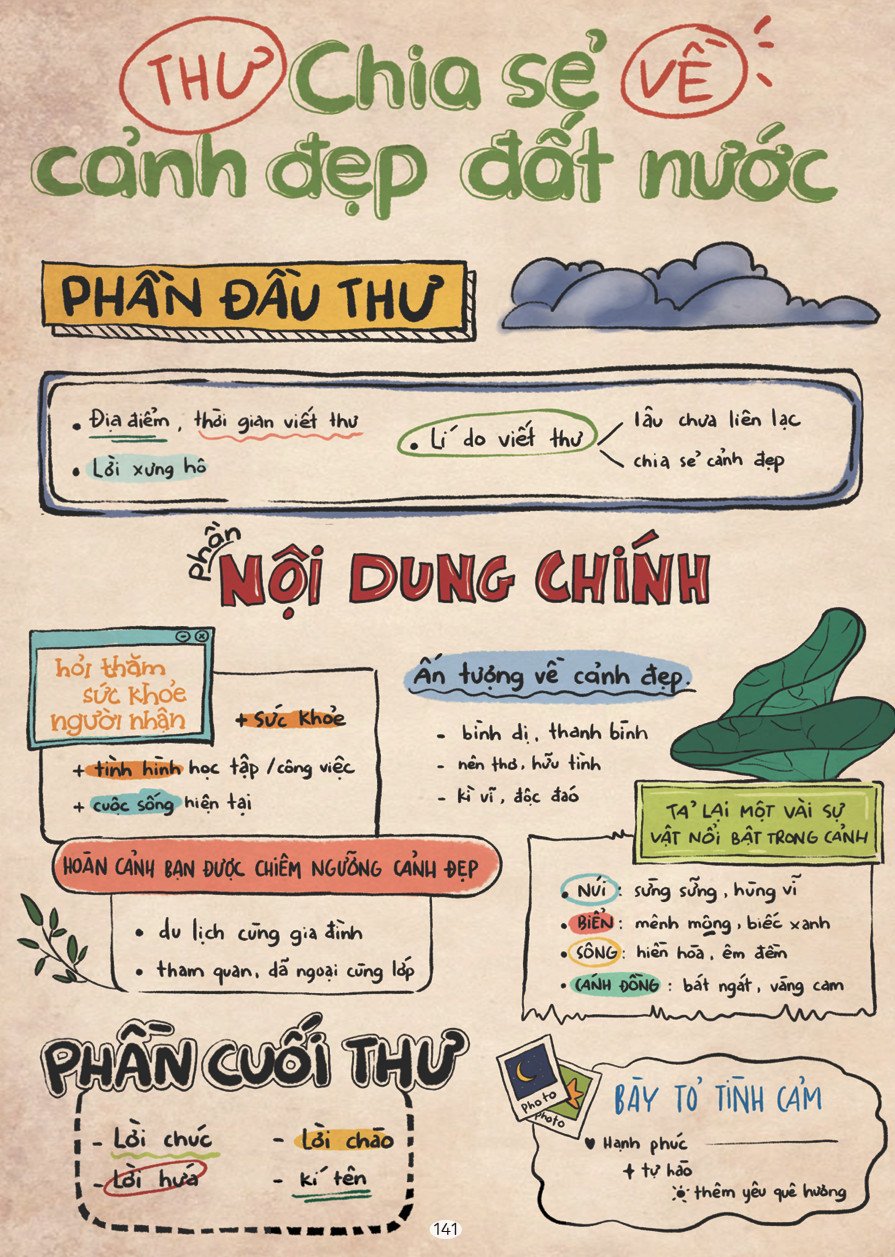 THƯ Chia sẻ VỀ
cảnh đẹp đất nước
PHẦN ĐẦU THƯ
• Địa điểm, thời gian viết thư
• Lời xưng hô
• Lí do viết thư
lâu chưa liên lạc
chia sẻ cảnh đẹp
phần
NỘI DUNG CHÍNH
hỏi thăm
sức khỏe
người nhận
+ sức khỏe
+ tình hình học tập / công việc
+ cuộc sống hiện tại
Ấn tượng về cảnh đẹp.
- bình dị, thanh bình
- nên thơ, hữu tình
- kì vĩ, độc đáo
HOÀN CẢNH BẠN ĐƯỢC CHIÊM NGƯỠNG CẢNH ĐẸP
• du lịch cùng gia đình
• tham quan, dã ngoại cùng lớp
TẢ LẠI MỘT VÀI SỰ
VẬT NỔI BẬT TRONG CẢNH
• NÚI : sừng sững, hùng vĩ
• BIỂN : mênh mông, biếc xanh
• SÔNG : hiền hòa, êm đềm
• CÁNH ĐỒNG : bát ngát, vàng cam
PHẦN CUỐI THƯ
- Lời chúc
- Lời hứa
- Lời chào
- kí tên
photo
photo
BÀY TỎ TÌNH CẢM
♥ Hạnh phúc
+ tự hào
thêm yêu quê hương
141